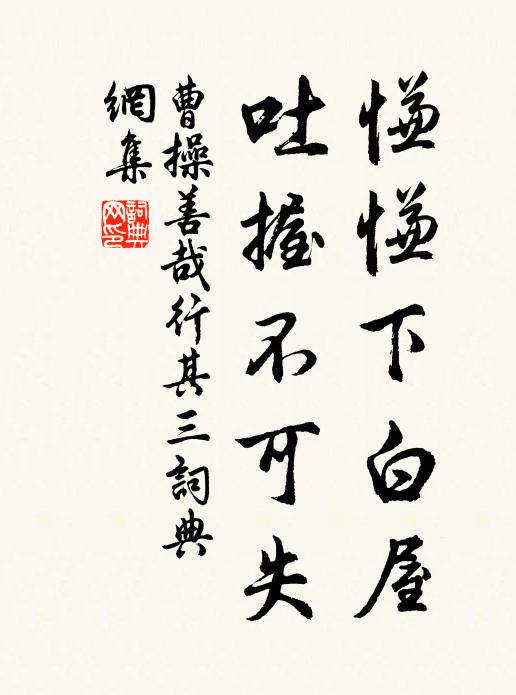 慊慊下白屋
吐握不可失
曹操善哉行其三詞典
網集
詞典
网印